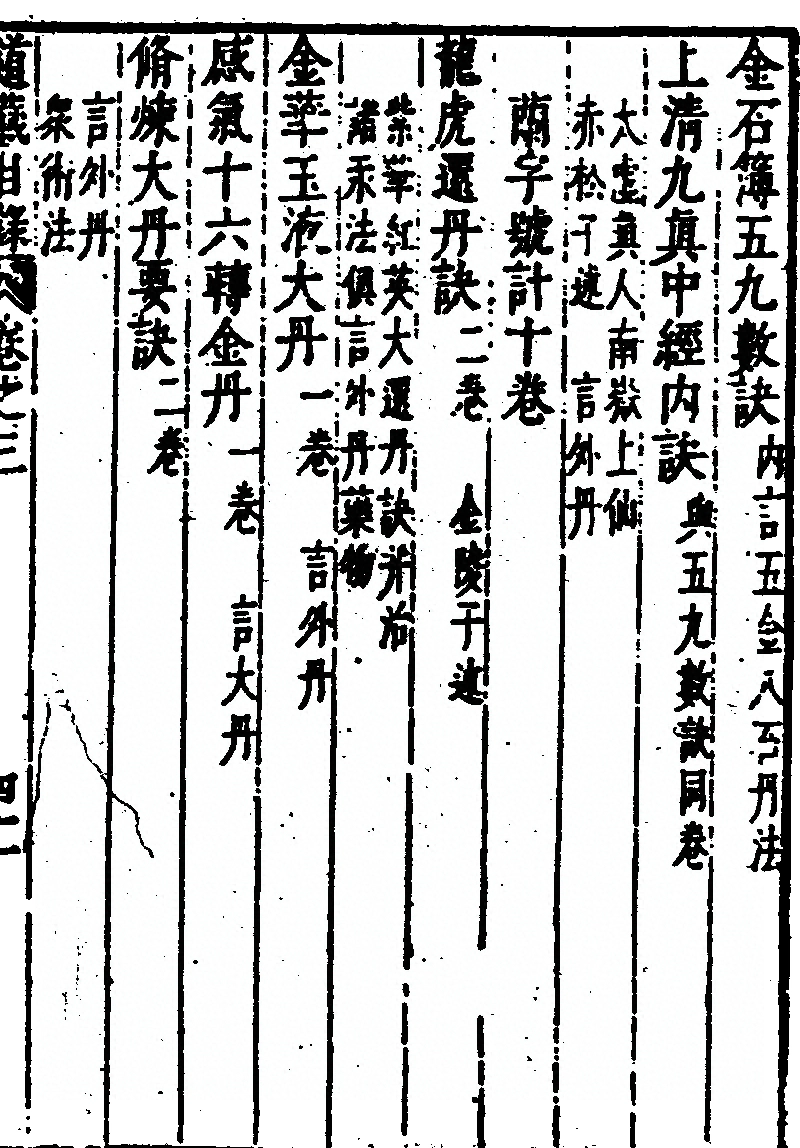 金石簿五九數訣內言五金八石丹法
上清九眞中經內訣與五九數訣同卷
太虛眞人南嶽上仙
赤松子述　言外丹
蘭字號計十卷
龍虎還丹訣二卷　金陵子述
紫華紅英大還丹訣幷治
諸汞法俱言外丹藥物
金華玉液大丹一卷　言外丹
感氣十六轉金丹一卷　言大丹
脩煉大丹要訣二卷
言外丹
衆術法
道藏目錄卷之三
四二